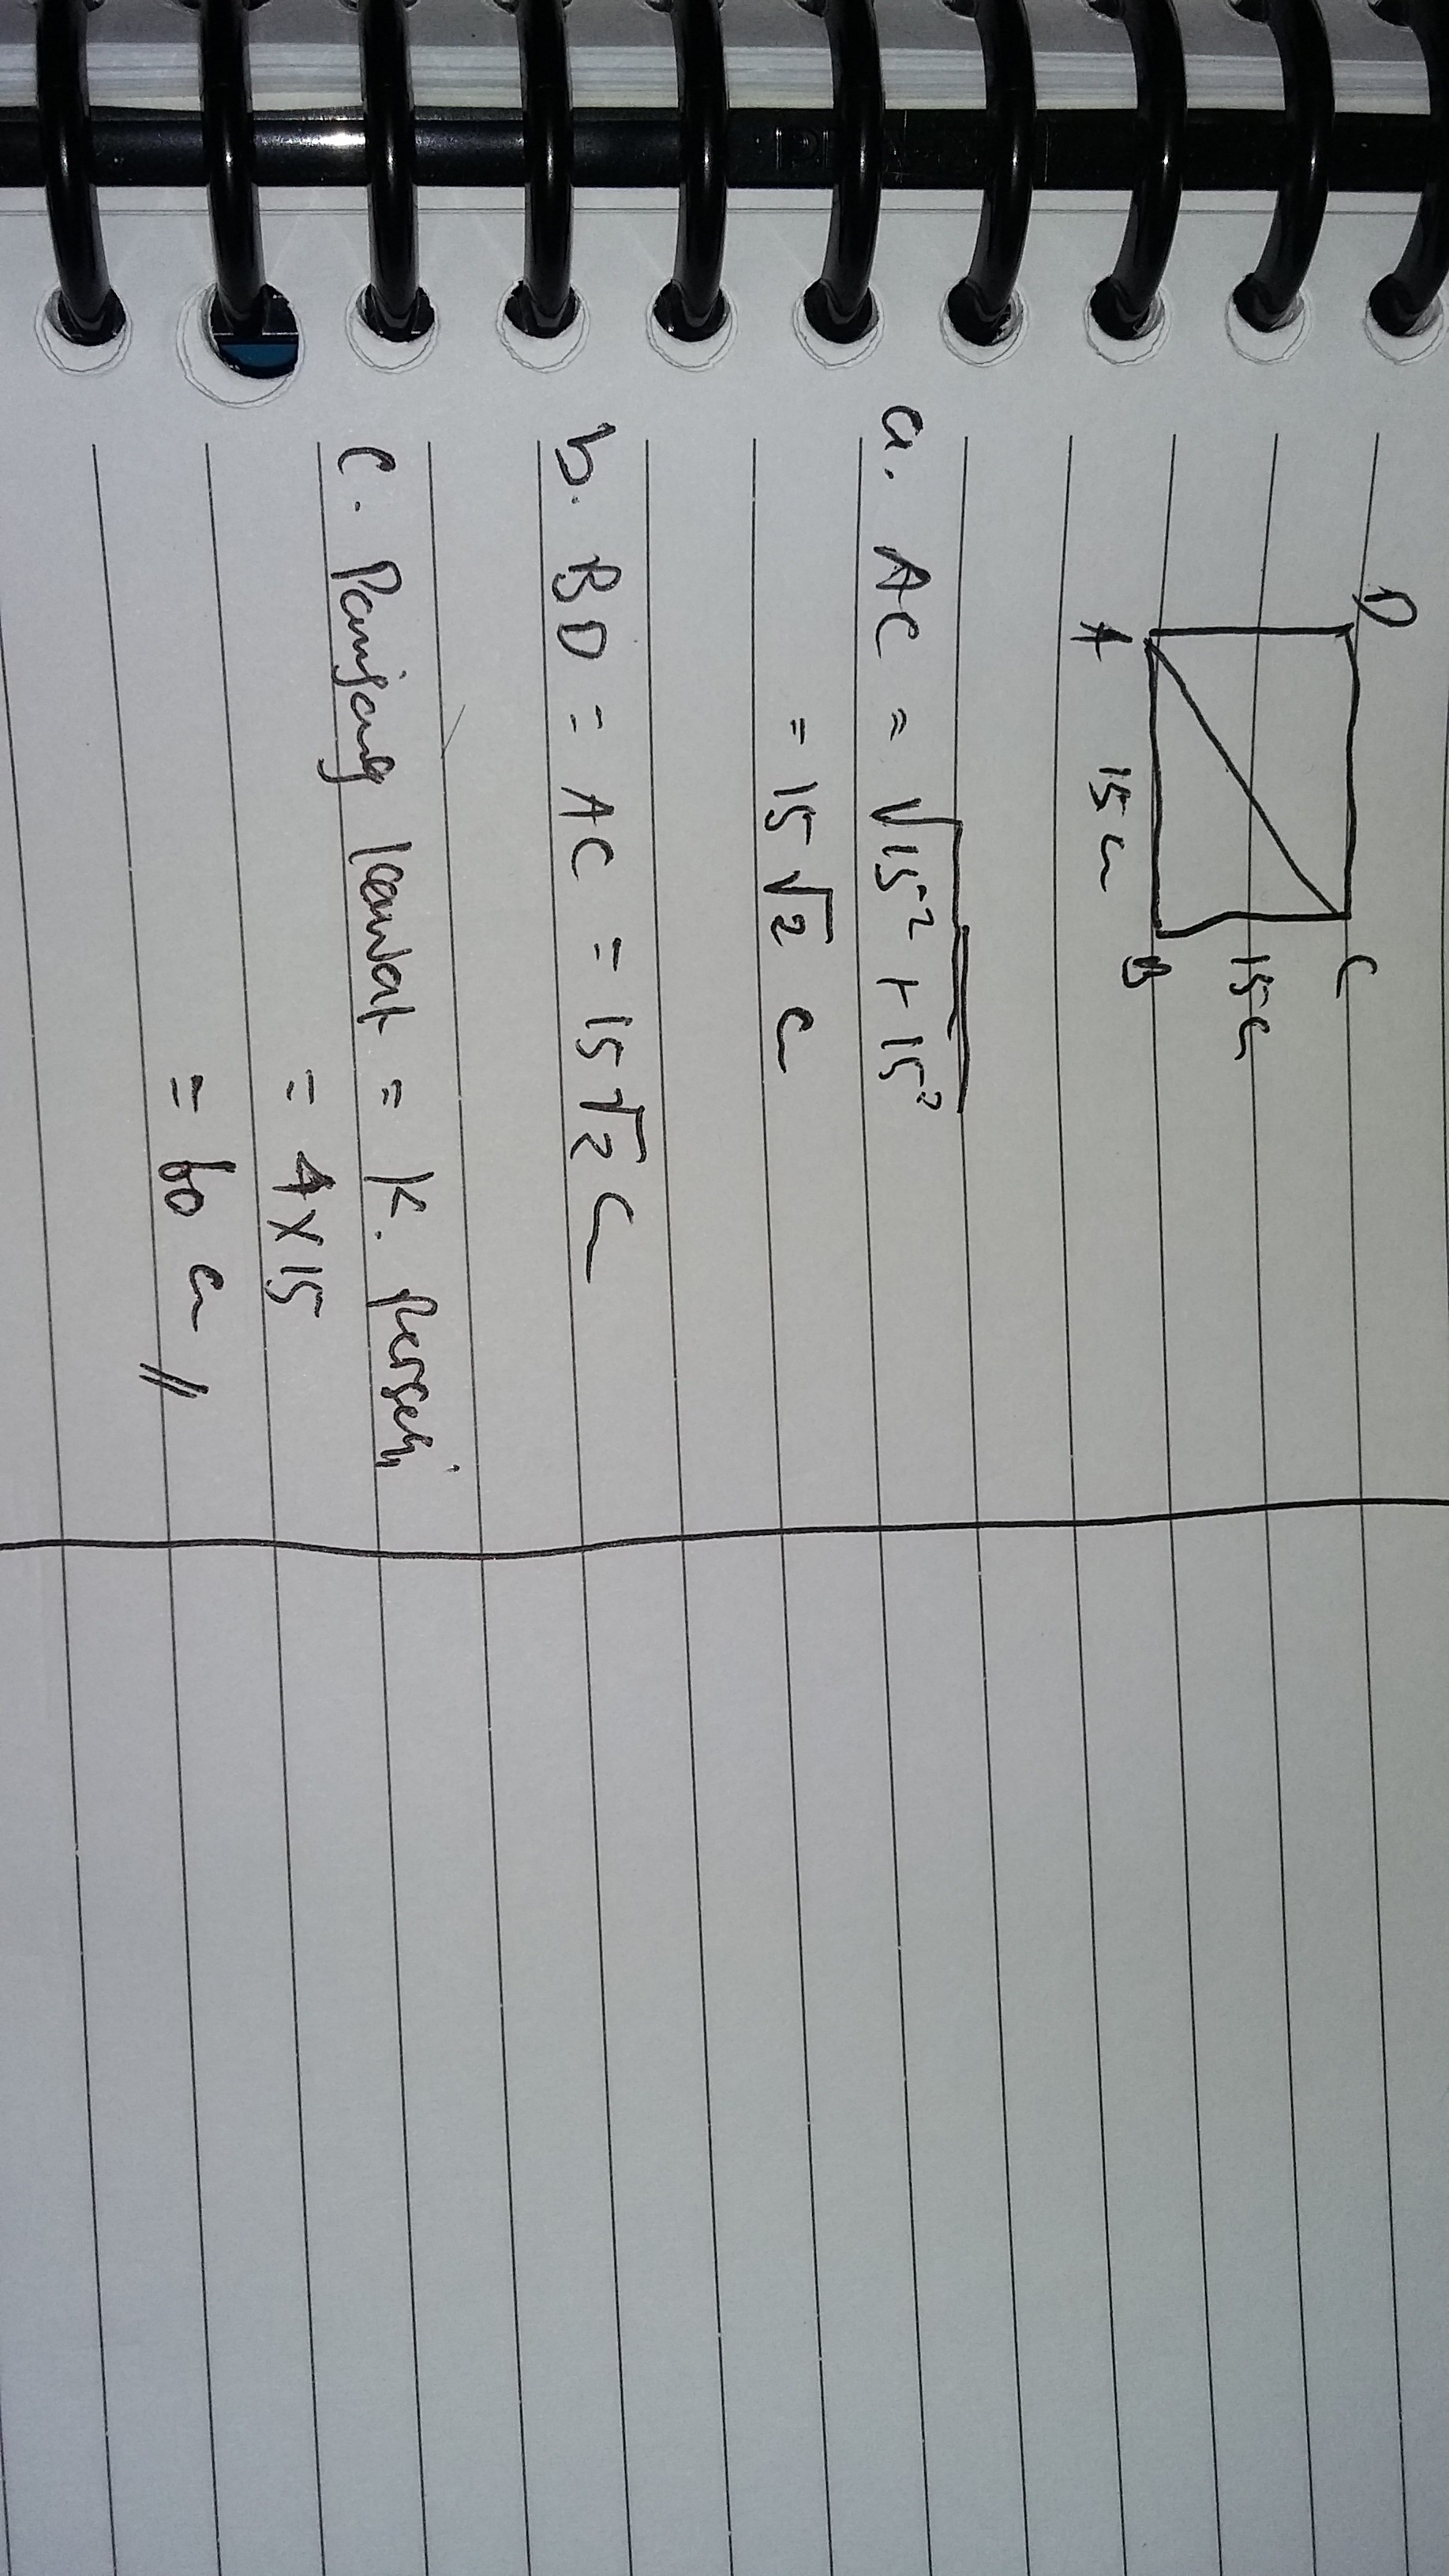 D C
15 cm
A B
15 cm
a. AC = √15² + 15²
= 15 √2 cm
b. BD = AC = 15 √2 cm
c. Panjang kawat = K. persegi
= 4 x 15
= 60 cm //